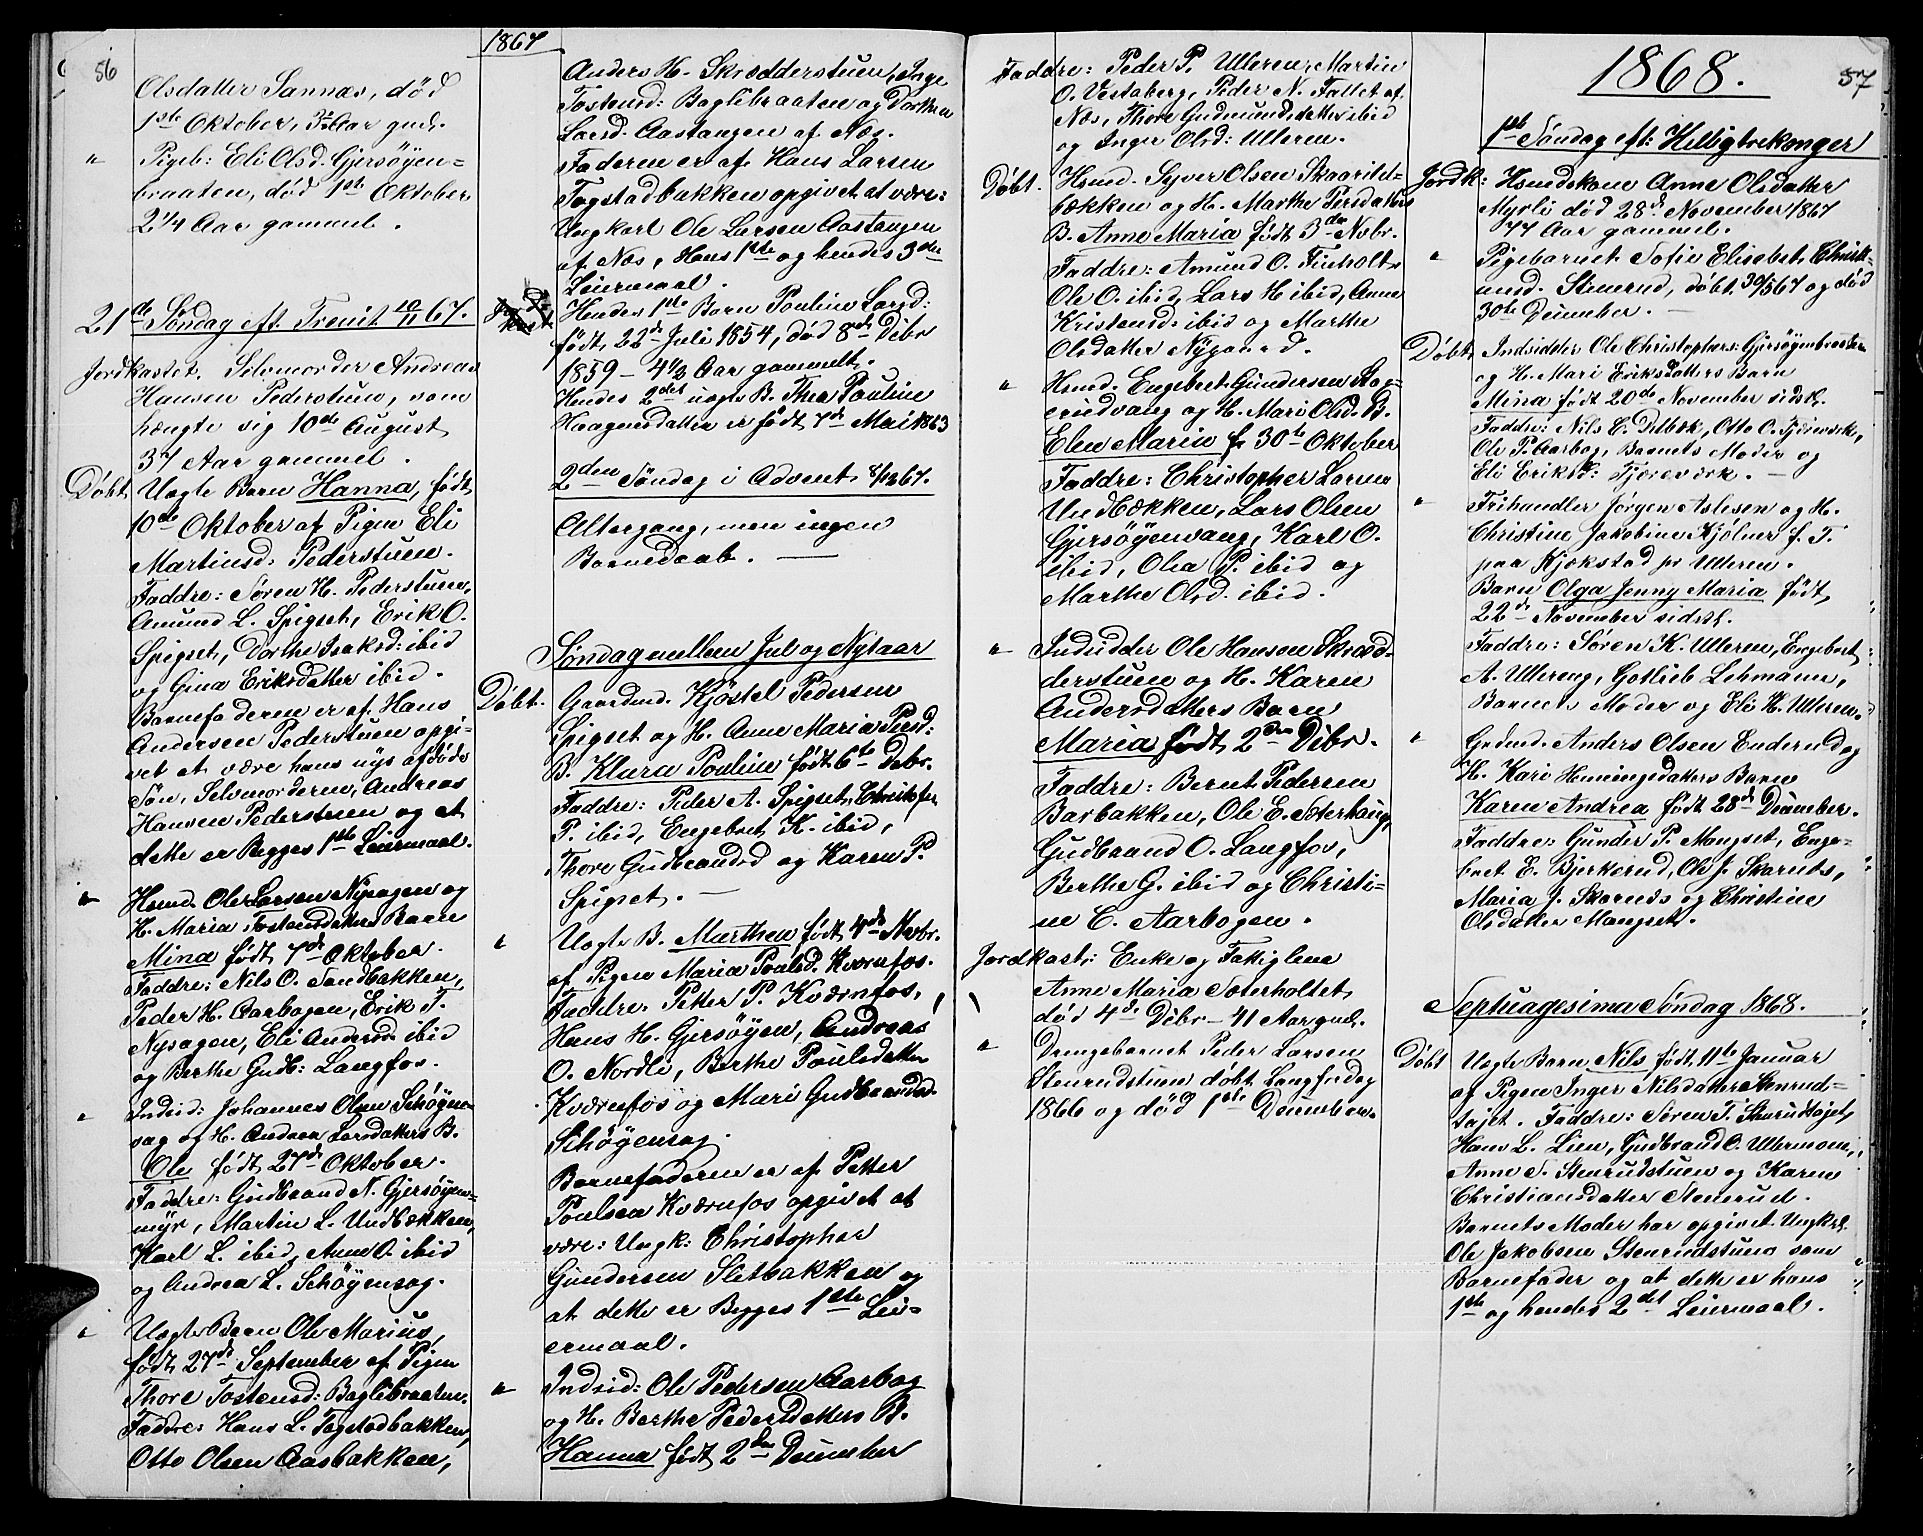 56
1867
Olsdatter Sannæs, død
1ste Oktober, 3½ Aar gml.
" Pigeb: Eli Olsd. Gjersøyen-
braaten, død 1ste Oktober
2¼ Aar gammel.
21de Søndag eft. Trenit. 10/11 67.
Jordkastet. Selvmorder Andreas
Hansen Pederstuen, som
hængte sig 10de August
37 Aar gammel.
Døbt Uægte Barn Hanna, født
10de Oktober af Pigen Eli
Martinsd: Pederstuen.
Faddre: Søren H. Pederstuen,
Amund L. Spigset, Erik O.
Spigset, Dorthe Isaksd: ibid
og Gina Eriksdatter ibid.
Barnefaderen er af Hans
Andersen Pederstuen opgi-
vet at være hans nys afdøde
Søn, Selvmorderen, Andreas
Hansen Pederstuen og at
dette er Begges 1ste Leiermaal.
" Hsmd. Ole Larsen Nysagen og
H. Maria Tostensdatters Barn
Mina født 7de Oktober.
Faddre: Nils O. Sandbakken,
Peder H. Aarbogen, Erik T.
Nysagen, Eli Andersd. ibid
og Berthe Gudb: Langfos.
" Indsid: Johannes Olsen Schøyen-
sag og H. Andrea Larsdatters B.
Ole født 27de Oktober.
Faddre: Gudbrand N. Gjersøyen-
myr, Martin L. Undbækken,
Karl L. ibid, Anne O. ibid
og Andrea L. Schøyensag.
" Uægte Barn Ole Marius,
født 27de September af Pigen
Thore Tostensd: Baglibraaten.
Faddre: Hans L. Fagstadbakken,
Otto Olsen Aasbakken,
Anders H. Skrædderstuen, Inge
Tostensd: Baglibraaten og Dorthea
Larsd. Aastangen af Næs.
Faderen er af Hans Larsen
Fagstadbakken opgivet at være:
Ungkarl Ole Larsen Aastangen
af Næs, Hans 1ste og hendes 3die
Leiermaal.
Hendes 1ste Barn Pouline Larsd:
født 22de Juli 1854, død 8de Debr
1859 – 4⅓ Aar gammelt.
Hendes 2det uægte B. Thea Pouline
Haagensdatter er født 7de Mai 1863
2den Søndag i Advent 8/12 67.
Altergang, men ingen
Barnedaab.
Søndag mellem Jul og Nytaar
Døbt. Gaardmd. Kjøstel Pedersen
Spigset og H. Anne Maria Persd:
B. Klara Pouline født 6te Debr.
Faddre: Peder A. Spigset, Christofer
P. ibid, Engebret K. ibid,
Thore Gudbrandsd og Karen P.
Spigset.
" Uægte B. Marthea født 4de Novbr.
af Pigen Maria Poulsd. Kværnfos.
Faddre. Petter P. Kværnfos,
Hans H. Gjersøyen, Andreas
O. Nordli, Berthe Poulsdatter
Kværnfos og Mari Gudbrandsd.
Schøyensag.
Barnefaderen er af Petter
Poulsen Kværnfos opgivet at
være: Ungk: Christopher
Gundersen Sletbakken og
at dette er Begges 1ste Lei-
ermaal.
" Indsid: Ole Pedersen Aarbog
og H. Berthe Pedersdatters B.
Hanna født 2den December
Faddre: Peder P. Ulleren, Martin
O. Vestaberg, Peder N. Fallet af
Næs, Thore Gudmundsdatter ibid
og Inger Olsd: Ulleren.
Døbt. Hsmd. Syver Olsen Skaarild-
bækken og H. Marthe Persdatters
B. Anne Maria født 3die Novbr.
Faddre: Amund O. Finholt,
Ole O. ibid, Lars H. ibid, Anne
Kristensd. ibid og Marthe
Olsdatter Nygaard.
" Hsmd. Engebret Gundersen Hag-
erudvang og H. Mari Olsd. B.
Elen Marie f. 30te Oktober
Faddre: Christopher Larsen
Undbækken, Lars Olsen
Gjersøyenvang, Karl O.
ibid, Olea P. ibid og
Marthe Olsd. ibid.
" Indsidder Ole Hansen Skræd-
derstuen og H. Karen
Andersdatters Barn
Maria født 2den Debr.
Faddre: Bernt Pedersen
Barbakken, Ole E. Sæterhaug,
Gudbrand O. Langfos,
Berthe G. ibid og Christi-
ne C. Aarbogen.
Jordkast: Enke og Fattiglem
Anne Maria Sæterholtet
død 4de Debr – 41 Aar gml.
" Drengebarnet Peder Larsen
Stenrudstuen døbt Langfredag
1866 og død 1ste December.
1868.
57
1ste Søndag eft: Helligtrekonger
Jordk: Hsmdskone Anne Olsdatter
Myrli død 28de November 1867
77 Aar gammel.
" Pigebarnet Sofie Elisabet Christi-
ansd. Stenerud, døbt 30/5 67 og død
30te December.
Døbt Indsidder Ole Christophers: Gjersøyenbraaten
og H. Mari Eriksdatters Barn
Mina født 20de November sidstl.
Faddre: Nils E. Dølbæk, Otto O. Tjæreværk,
Ole P. Aarbog, Barnets Moder og
Eli Eriksd: Tjæreværk.
" Frihandler Jørgen Aslesen og H.
Christine Jakobine Kjølner f. T.
paa Kjøkstad pr Ulleren.
Barn Olga Jenny Maria født
22de November sidstl.
Faddre: Søren K. Ulleren, Engebret
A. Ullereng, Gotlieb Lehmann,
Barnets Moder og Eli H. Ulleren.
" Grdmd. Anders Olsen Enderud og
H. Kari Hemingsdatters Barn
Karen Andrea født 28de December.
Faddre: Gunder P. Mangset, Enge-
bret E. Bjerkerud, Ole J. Skarnds,
Maria J. Skarnds og Christine
Olsdatter Mangset.
Septuagesima Søndag 1868.
Døbt Uægte Barn Nils født 11te Januar
af Pigen Inger Nilsdatter Stenrud-
tøjet. Faddre: Søren T. Stenrudtøjet,
Hans L. Lien, Gudbrand O. Ullermoen,
Anne S. Stenrudstuen og Karen
Christiansdatter Stenerud.
Barnets Moder har opgivet Ungkrl.
Ole Jakobsen Stenrudstuen som
Barnefader og at dette er hans
1ste og hendes 2det Leiermaal.